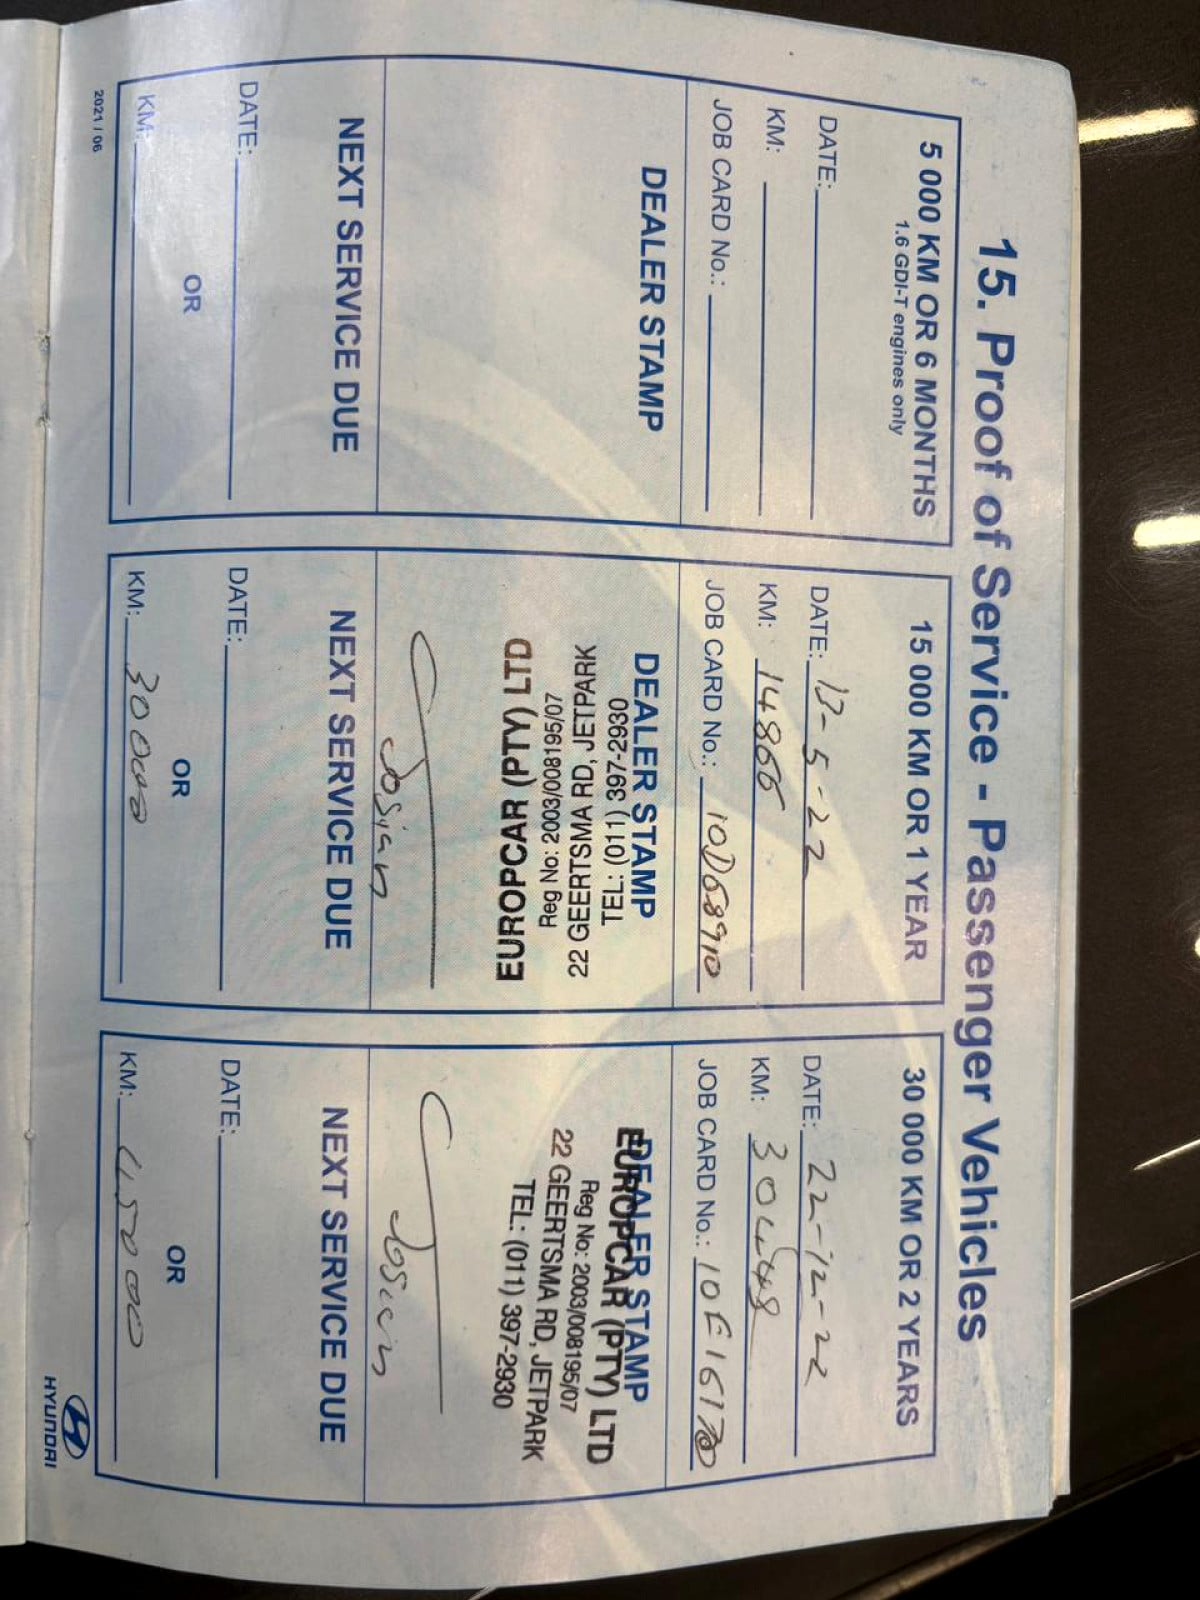 15. Proof of Service - Passenger Vehicles
5 000 KM OR 6 MONTHS
1.6 GDI-T engines only
DATE:
KM:
JOB CARD No.:
DEALER STAMP
NEXT SERVICE DUE
DATE:
OR
KM:
15 000 KM OR 1 YEAR
DATE: 13-5-22
KM: 14866
JOB CARD No.: 10D68910
DEALER STAMP
TEL: (011) 397-2930
22 GEERTSMA RD, JETPARK
Reg No: 2003/008195/07
EUROPCAR (PTY) LTD
Josian
NEXT SERVICE DUE
DATE:
OR
KM: 30000
30 000 KM OR 2 YEARS
DATE: 22-12-22
KM: 30448
JOB CARD No.: 10E16170
DEALER STAMP
EUROPCAR (PTY) LTD
Reg No: 2003/008195/07
22 GEERTSMA RD, JETPARK
TEL: (011) 397-2930
Josian
NEXT SERVICE DUE
DATE:
OR
KM: 45000
2021 / 06
HYUNDAI